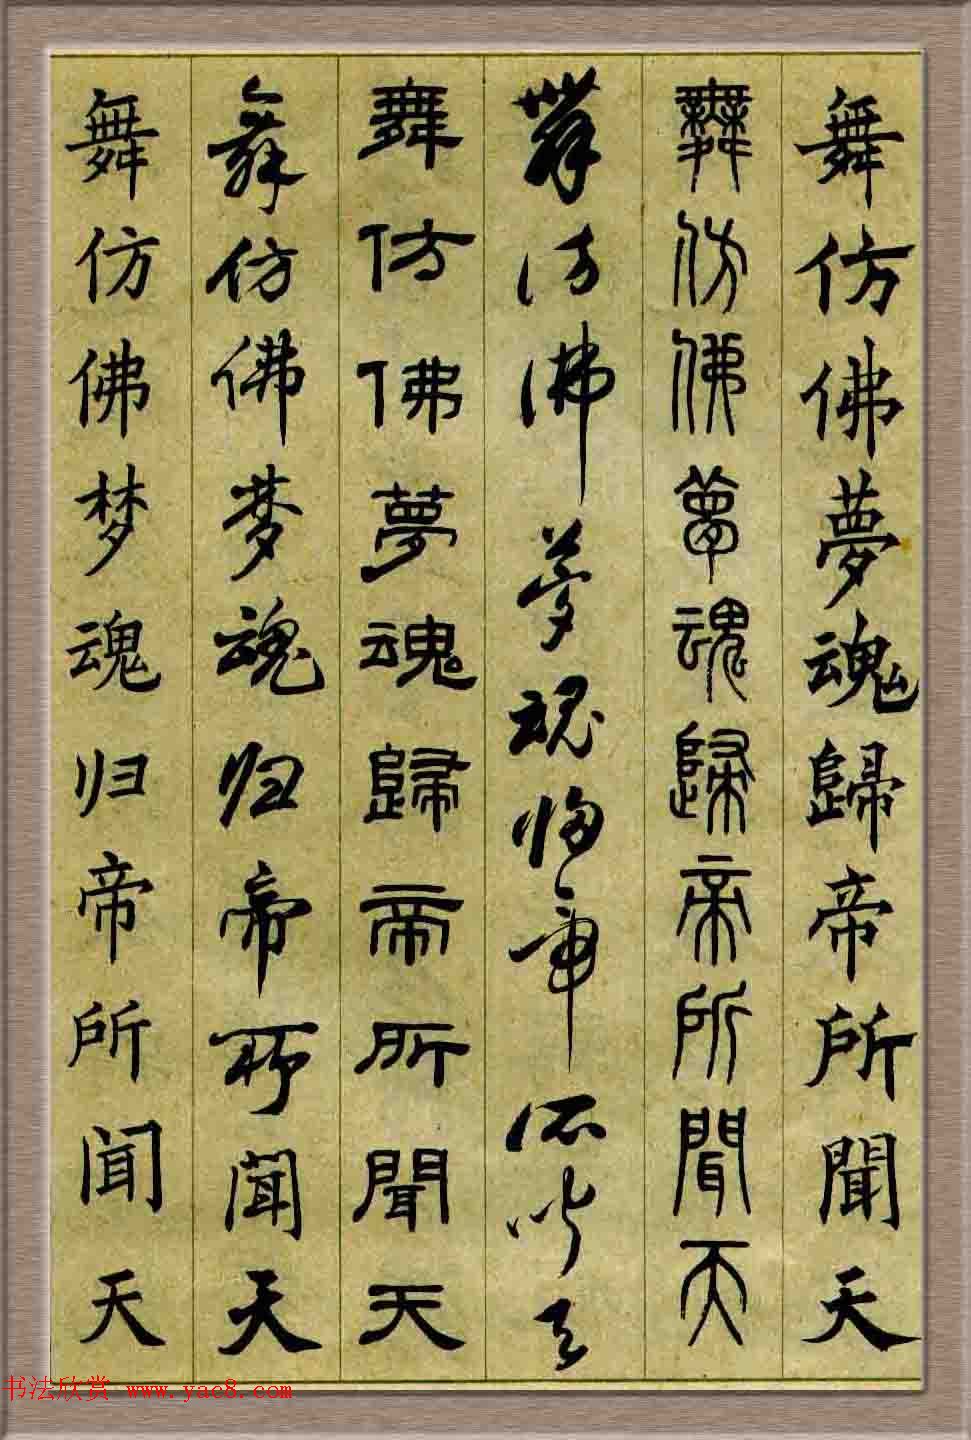 舞仿佛夢魂歸帝所聞天
舞仿佛夢魂歸帝所聞天
舞仿佛夢魂归帝所闻天
舞仿佛夢魂歸帝所聞天
舞仿佛梦魂归帝所闻天
舞仿佛梦魂归帝所闻天
书法欣赏 www.yac8.com